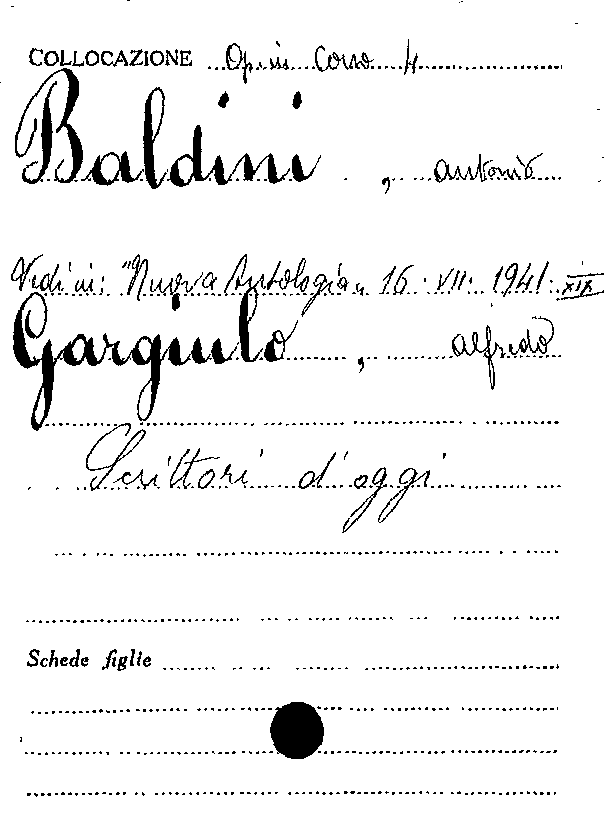 COLLOCAZIONE Op. in Corso 4
Baldini, Antonio
Vedi in: "Nuova Antologia" 16. VII. 1941. XIX
Gargiulo, Alfredo
Scrittori d'oggi
Schede figlie